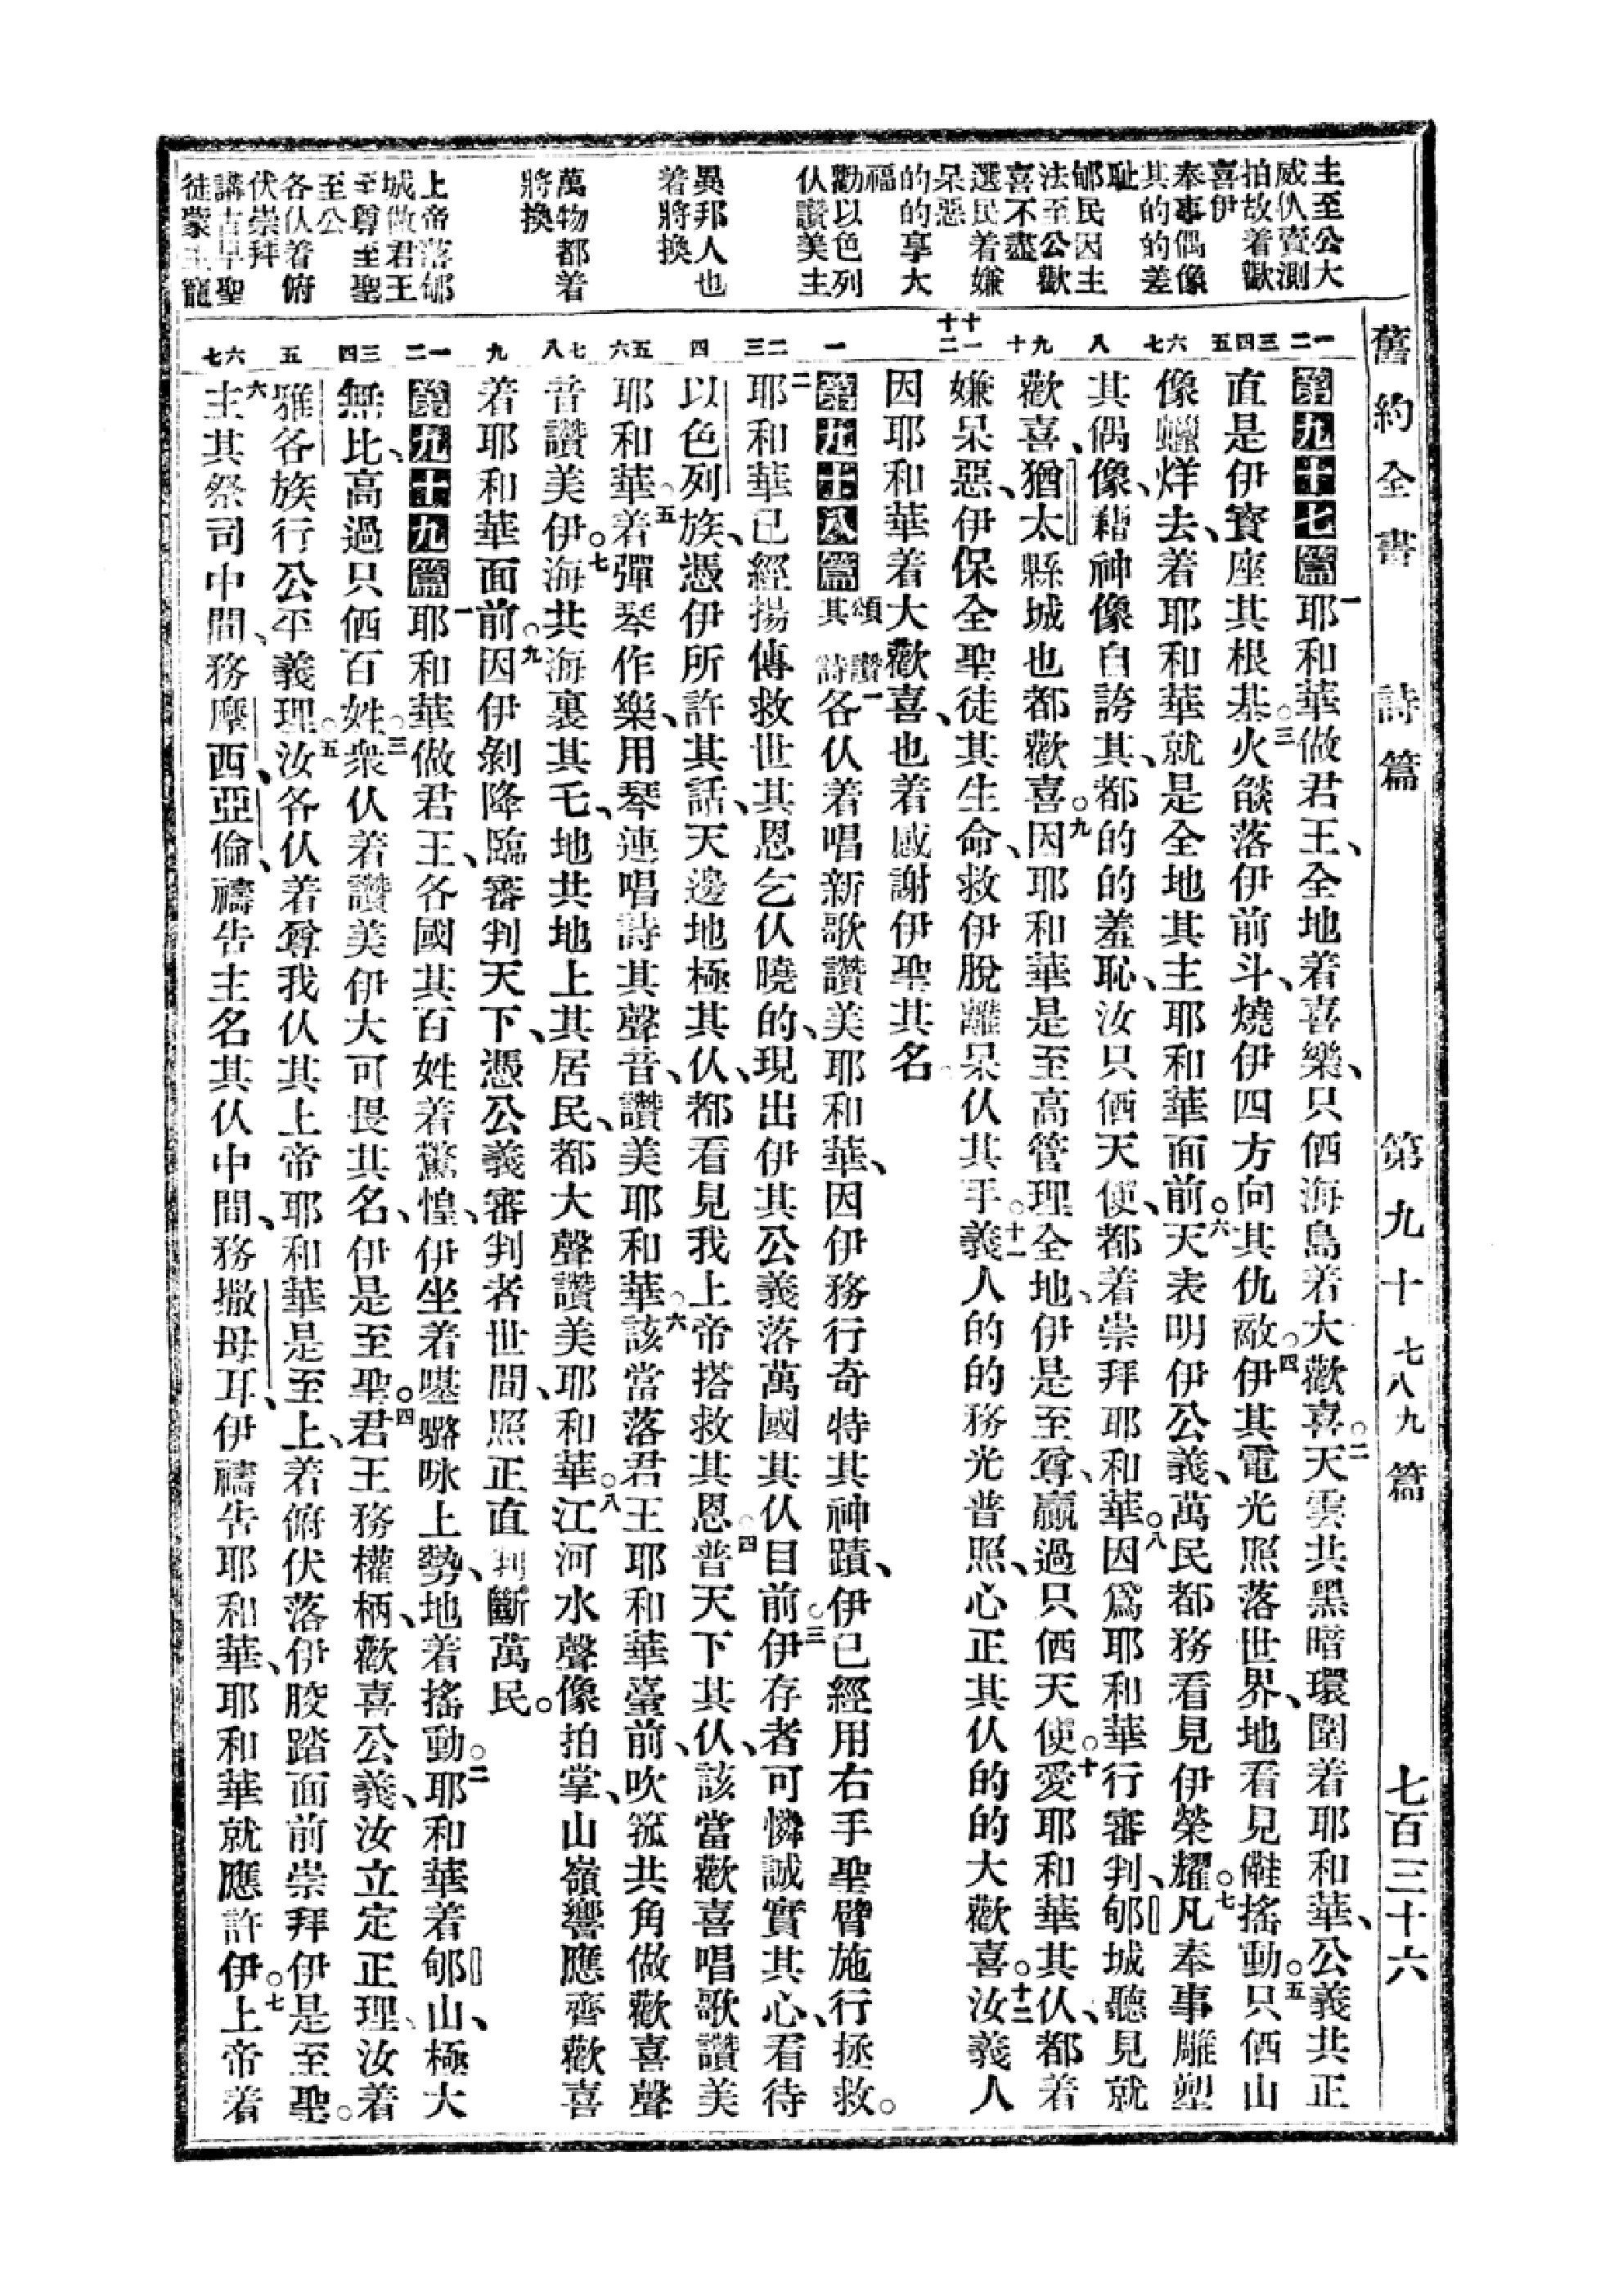 舊約全書　詩篇　第九十七八九篇　七百三十六
主至公大
威仈賣測
拍故着歡
喜伊
奉事偶像
其的的差
恥
郇民因主
法至公歡
喜不盡
選民着嫌
呆惡
的的享大
福
勸以色列
仈讚美主
異邦人也
着將換
萬物都着
將換
上帝落郇
城做君王
至尊至聖
至公
各仈着俯
伏崇拜
講古早聖
徒蒙主寵
一二
三四五
六七
八
九十
十一十二
一
二三
四
五六
七八
九
一二
三四
五
六七
第九十七篇一耶和華做君王、全地着喜樂、只伵海島着大歡喜。二天雲共黑暗環圍着耶和華、公義共正
直是伊寶座其根基。三火燄落伊前斗、燒伊四方向其仇敵。四伊其電光照落世界、地看見儺搖動。五只伵山
像蠟烊去、着耶和華就是全地其主耶和華面前。六天表明伊公義、萬民都務看見伊榮耀。七凡奉事雕塑
其偶像、藉神像自誇其、都的的羞恥、汝只伵天使、都着崇拜耶和華。八因爲耶和華行審判、郇城聽見就
歡喜、猶太縣城也都歡喜。九因耶和華是至高管理全地、伊是至尊、贏過只伵天使。十愛耶和華其仈、都着
嫌呆惡、伊保全聖徒其生命、救伊脫離呆仈其手。十一義人的的務光普照、心正其仈的的大歡喜。十二汝義人
因耶和華着大歡喜、也着感謝伊聖其名。
第九十八篇 頌讚其詩一各仈着唱新歌讚美耶和華、因伊務行奇特其神蹟、伊已經用右手聖臂施行拯救。
二耶和華已經揚傳救世其恩乞仈曉的、現出伊其公義落萬國其仈目前。三伊存者可憐誠實其心、看待
以色列族、憑伊所許其話、天邊地極其仈、都看見我上帝搭救其恩。四普天下其仈、該當歡喜唱歌讚美
耶和華。五着彈琴作樂、用琴連唱詩其聲音、讚美耶和華。六該當落君王耶和華臺前、吹箛共角做歡喜聲
音讚美伊。七海共海裏其乇、地共地上其居民、都大聲讚美耶和華。八江河水聲像拍掌、山嶺響應齊歡喜
着耶和華面前。九因伊剝降臨審判天下、憑公義審判者世間、照正直判斷萬民。
第九十九篇一耶和華做君王、各國其百姓着驚惶、伊坐着𠸄𡀔𠰻上勢、地着搖動。二耶和華着郇山、極大
無比、高過只伵百姓。三衆仈着讚美伊大可畏其名、伊是至聖。四君王務權柄、歡喜公義、汝立定正理、汝着
雅各族行公平義理。五汝各仈着尊我仈其上帝耶和華是至上、着俯伏落伊骹踏面前崇拜伊是至聖。
六主其祭司中間、務摩西、亞倫、禱告主名其仈中間、務撒母耳、伊禱告耶和華、耶和華就應許伊。七上帝着